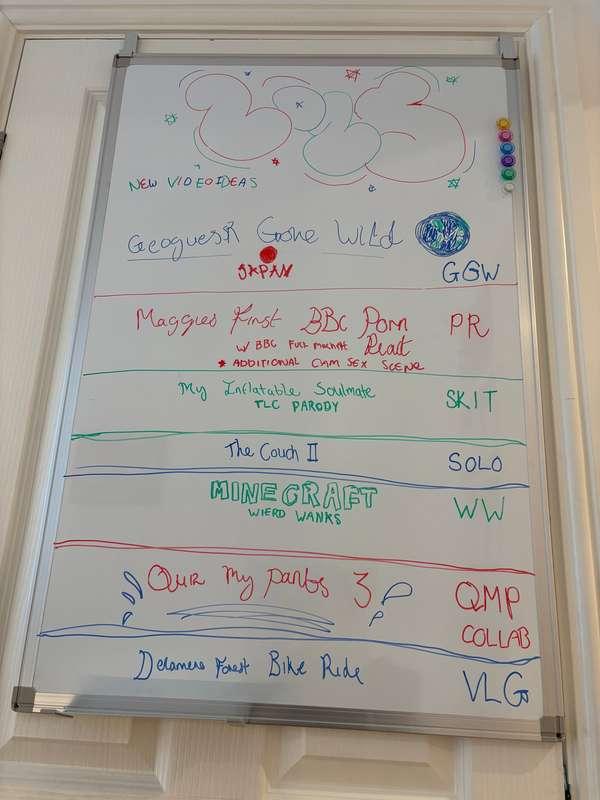 2023
NEW VIDEO IDEAS
GeoguesR Gone Wild
JAPAN
GGW
Maggies First BBC Porn
PR
W/ BBC FULL React
* ADDITIONAL CAM SEX SCENE
My Inflatable Soulmate
TLC PARODY
SKIT
The Couch II
SOLO
MINECRAFT
WIERD WANKS
WW
My Pants 3
QMP
COLLAB
Delamere Forest Bike Ride
VLG